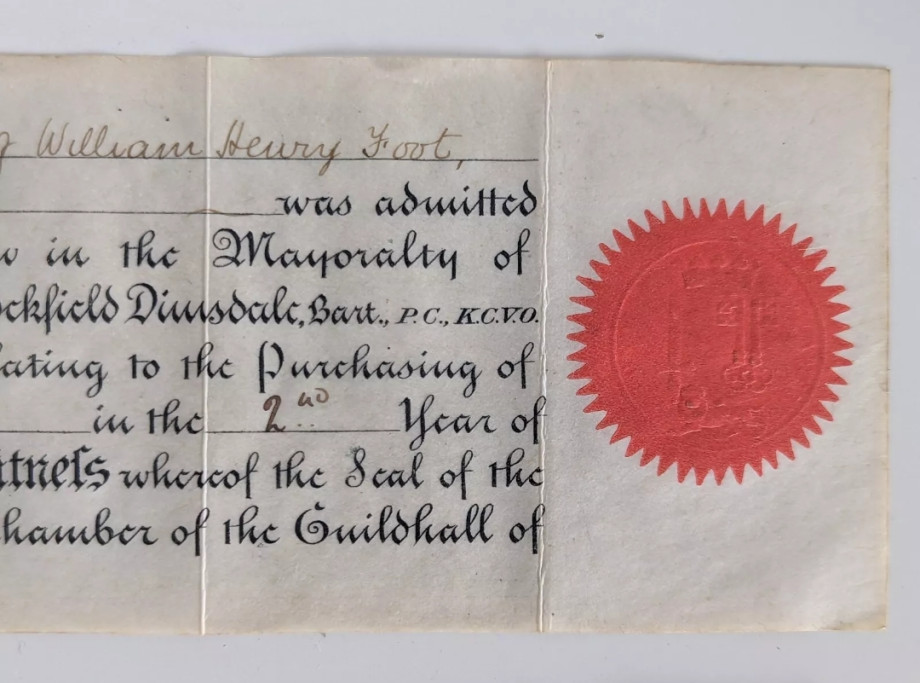 William Henry Foot,
was admitted
in the Mayoralty of
ckfield Dimsdale, Bart., P.C., K.C.V.O.
ating to the Purchasing of
in the 2nd Year of
tness whereof the Seal of the
hamber of the Guildhall of